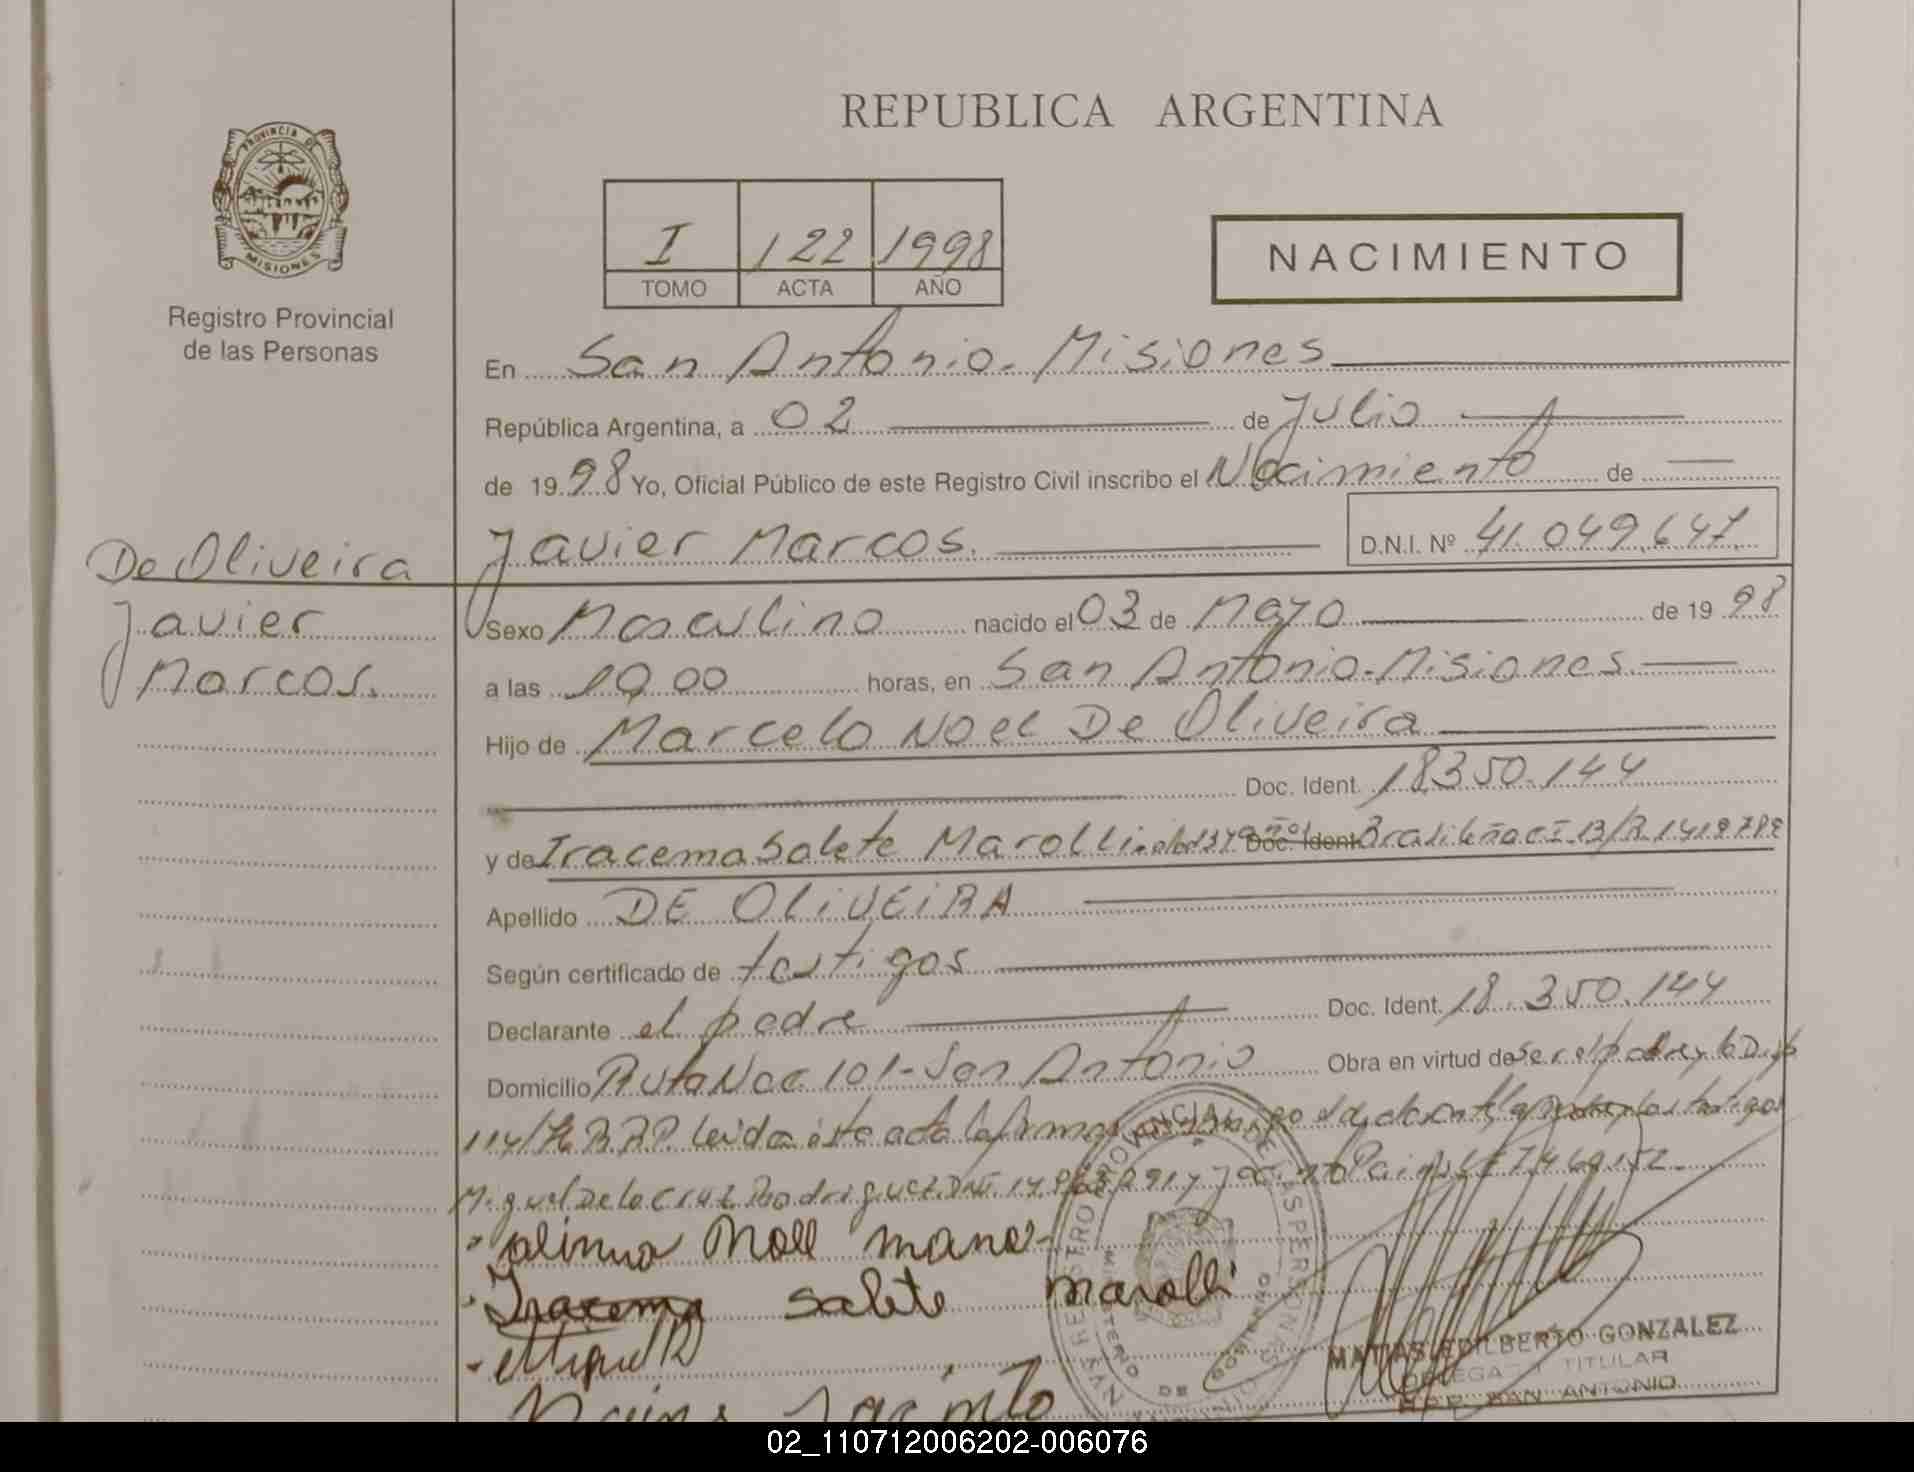 REPUBLICA ARGENTINA
PROVINCIA DE
MISIONES
Registro Provincial
de las Personas
I 122 1998
TOMO ACTA AÑO
NACIMIENTO
En San Antonio - Misiones
República Argentina, a 02 de Julio
de 1998 Yo, Oficial Público de este Registro Civil inscribo el Nacimiento de
Javier Marcos. D.N.I. Nº 41.049.647
De Oliveira
Javier
Marcos.
Sexo Masculino nacido el 03 de Mayo de 1998
a las 10,00 horas, en San Antonio - Misiones
Hijo de Marcelo Noel De Oliveira
Doc. Ident. 18350.144
y de Iracema Salete Marolli Doc. Ident Brasileña C.I.
Apellido DE OLIVEIRA
Según certificado de testigos
Declarante el padre Doc. Ident. 18.350.144
Domicilio Ruta Nac 101 - San Antonio Obra en virtud de ser el padre y
leida este acta la firman
Miguel De la Cruz Rodriguez DNI. y
Noel
Iracema salete marolli
Miguel R
Jacinto
MATIAS EDILBERTO GONZALEZ
TITULAR
SAN ANTONIO
02_110712006202-006076